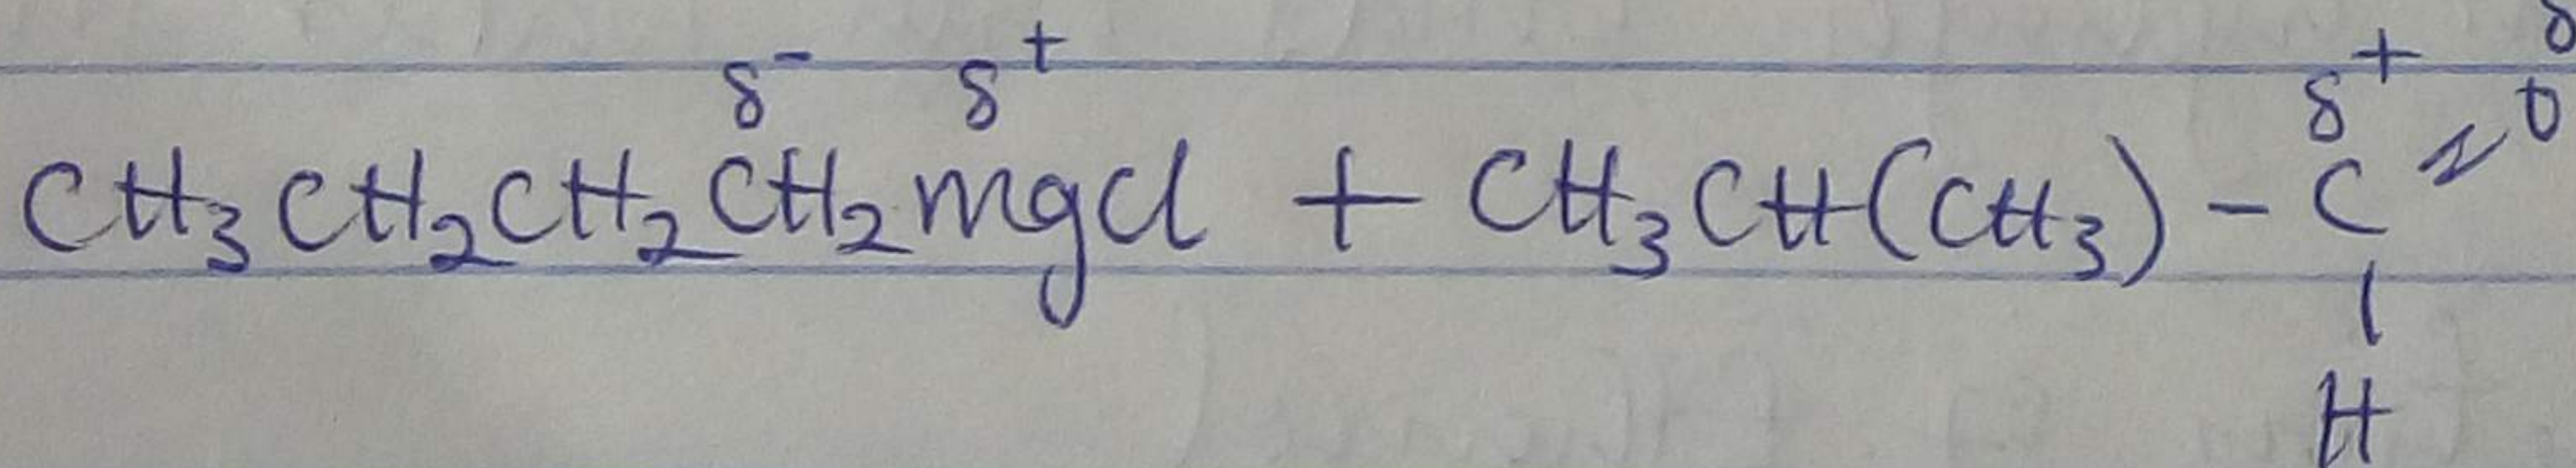 δ⁻ δ⁺ δ⁺ δ
CH₃CH₂CH₂CH₂mgcl + CH₃CH(CH₃) - C = O
|
H